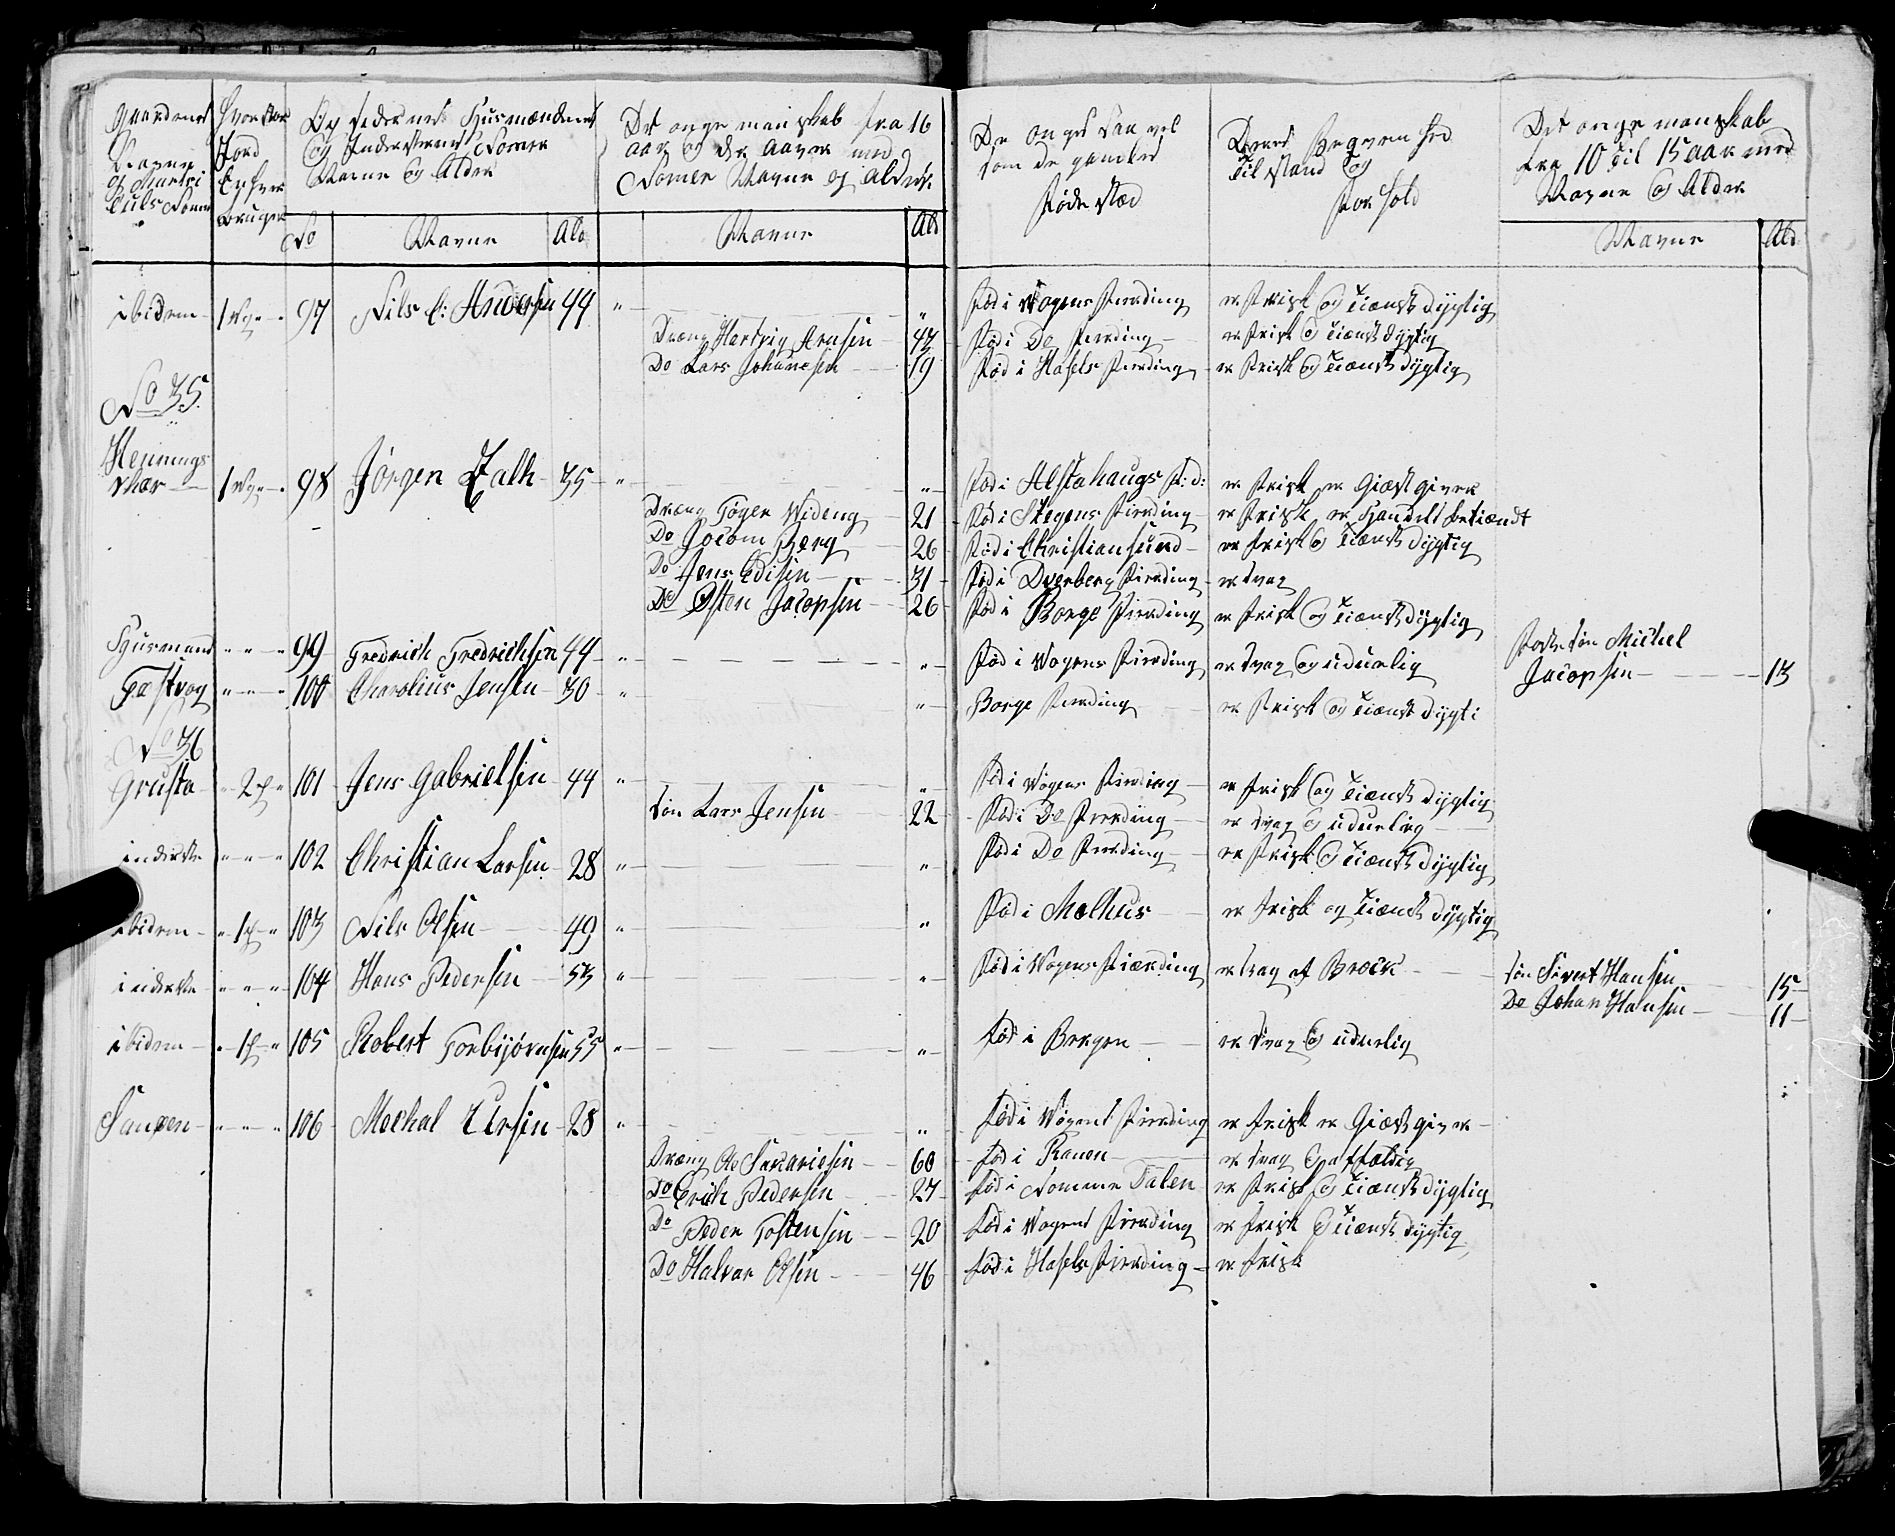 Gaardenes Navne og Matriculs Nomer
Hvor stor Jord Enhver bruger
Opsidernes Husmændenes og Indersternes Nomer Navne og Alder
Det onge manskab fra 16 aar og der aaver med Nomer Navne og Alder
De onges saa vel som de gamles Føde stæd
Deres Begvem hed Tilstand og For hold
Det onge manskab fra 10 til 15 aar med Navne og Alder
No Navne Ald Navne Ald Navne Ald
ibidem 1 Vg 97 Nils C: Andersen 44 " " Fød i Vogens Fierding er Frisk og tienst dygtig
Dræng Hertvig Arnsen 47 Fød i Do Fierding er Frisk og tienst dygtig
Do Lars Johanesen 19 Fød i Hasels Fierding er Frisk og tienst dygtig
No 35
Hennings
skær 1 Vg 98 Jørgen Falk 35 " " Fød i Alstahaugs F: d: er Frisk er Giæstgiver
Dræng Tøger Wideng 21 Fød i Stegens Fierding er Frisk er Handels betiændt
Do Jocom Berg 26 Fød i Christiansund er Frisk og tienst dygtig
Do Jens Edisen 31 Fød i Dverberg Fierding er svag
Do Østen Jacopsen 26 Fød i Borge Fierding er Frisk og tienst dygtig
Husmand " " " 99 Fredrich Fredrichsen 44 " " Fød i Vogens Fierding er svag og uduelig Foster søn Michel
Jacopsen 13
Fæstvog " " " 100 Charolius Jensen 30 " " Borge Fierding er Frisk og tienst dygti
No 36
Grusta " 2 " 101 Jens Gabrielsen 44 " " Fød i Vogens Fierding er frisk og tienst dygtig
søn Lars Jensen 22 Fød i Do Fierding er svag og uduelig
inderste " " " 102 Christian Larsen 28 " " Fød i Do Fierding er Frisk og tienst dygtig
ibidem " 1 " 103 Nils Olsen 49 " " Fød i Mælhus er frisk og tienst dygtig
inderste " " " 104 Hans Pedersen 53 " " Fød i Vogens Fiærding er svag af Brock søn Sivert Hansen 15
Do Johan Hansen 11
ibidem " 1 " 105 Robert Torbijørnsen 55 " " fød i Bergen er svag og uduelig
Sanden " " " 106 Mechal Ursin 28 " " fød i Vogens Fierding er frisk er Giæstgiver
Dræng Ole Sakariesen 60 fød i Ranen er svag og affældig
Do Erich Pedersen 27 fød i Nommedalen er Frisk og tienst dygtig
Do Peder Tostensen 20 fød i Vogens Fierding er frisk og tienst dygtig
Do Halvar Olsen 46 fød i Hasels Fierding er frisk